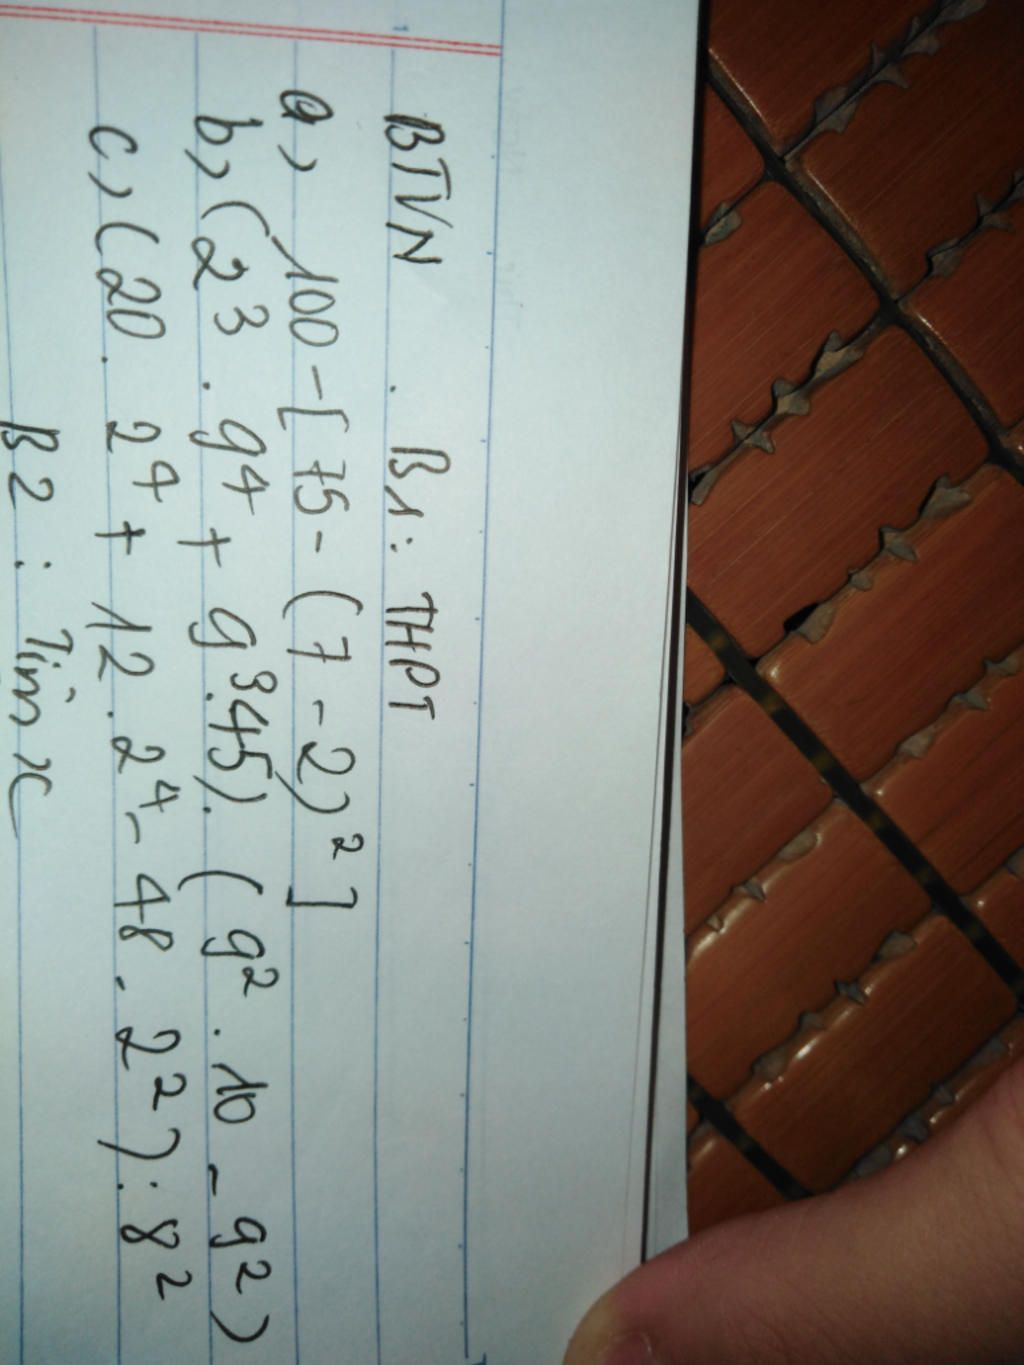 BTVN . B1: THPT
a, 100 - [ 75 - ( 7 - 2 )² ]
b, ( 2³ . 9⁴ + 9³.45) . ( 9² . 10 - 9² )
c, ( 20 . 2⁴ + 12 . 2⁴ - 48 . 2² ) : 8²
B2 : Tìm x